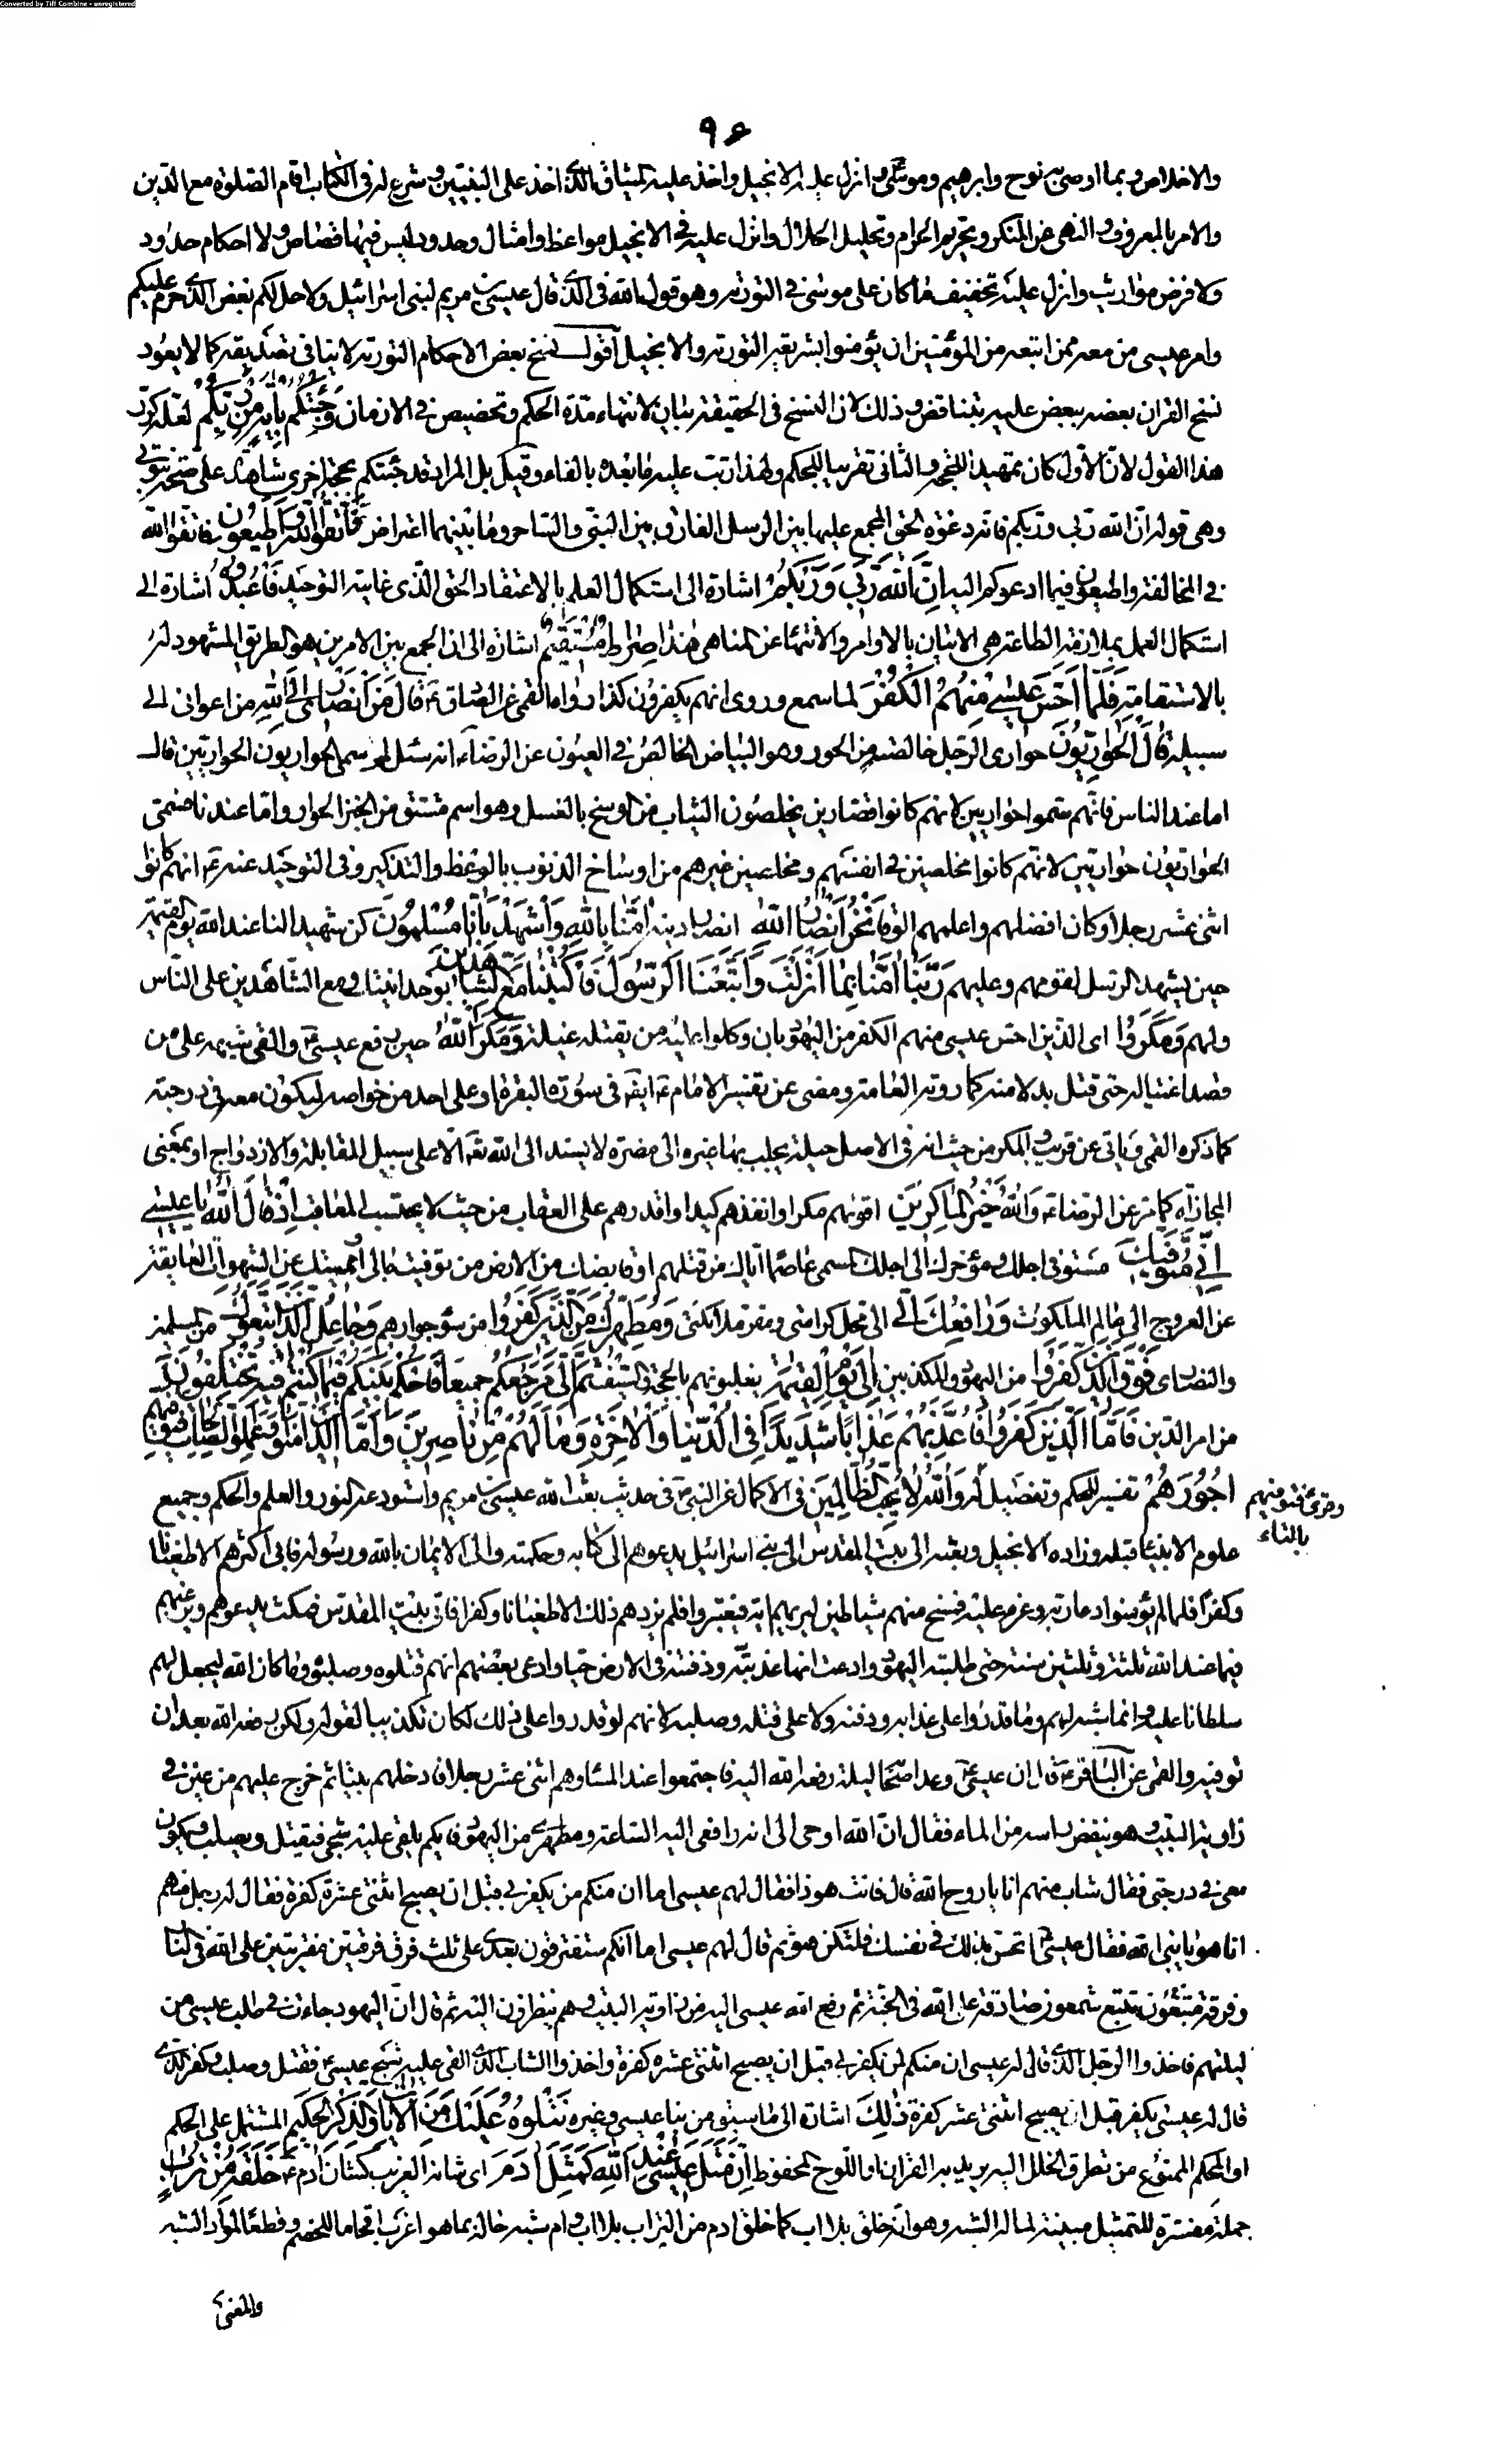 Converted by Tiff Combine - unregistered
٩٤
والاخلاص وبما اوصى به نوح وابرهيم وموسى وانزل عليه الانجيل واخذ عليه الميثاق الذى اخذ على النبيين وشرع له فى الكتاب اقام الصلوة مع الدين
والامر بالمعروف والنهى عن المنكر وتحريم الحرام وتحليل الحلال وانزل عليه فى الانجيل مواعظ وامثال وحدود ليس فيها قصاص ولا احكام حدود
ولا فرض مواريث وانزل عليه تخفيف ما كان على موسى فى التورته وهو قول الله فى الذى قال عيسى بن مريم لبنى اسرائيل ولاحل لكم بعض الذى حرم عليكم
وامر عيسى من معه ممن اتبعه من المؤمنين ان يؤمنوا بشريعة التورته والانجيل اقول نسخ بعض الاحكام التورته لا ينافى تصديقه كما لا يعود
نسخ القران بعضه ببعض عليه بتناقض وذلك لان النسخ فى الحقيقة بيان لانتهاء مدة الحكم وتخصيص فى الازمان وَجِئْتُكُم بِاٰيَةٍ مِن رَبِّكُمْ لعله كرّر
هذا القول لانّ الاول كان تمهيدا للحجة والثانى تقريبا للحكم ولهذا رتب عليه ما بعده بالفاء وقيل بل المراد قد جئتكم بحجة اخرى شاهدة على صحة نبوتى
وهى قوله انّ الله ربى وربكم فانه دعوة الحق المجمع عليها بين الرسل الفارق بين النبى والساحر وما بينهما اعتراض فَاتَّقُوا اللهَ وَاَطِيعُونِ فاتقوا الله
فى المخالفة واطيعون فيما ادعوكم اليه اِنَّ اللهَ رَبِّي وَرَبُّكُمْ اشارة الى استكمال العلم بالاعتقاد الحق الذى غايته التوحيد فَاعْبُدُوهُ اشارة الى
استكمال العمل بملازمة الطاعة هى الاتيان بالاوامر والانتهاء عن المناهى هٰذا صِراطٌ مُسْتَقِيمٌ اشارة الى ان الجمع بين الامرين هو الطريق المشهود له
بالاستقامة فَلَمّا اَحَسَّ عِيسىٰ مِنْهُمُ الْكُفْرَ لما سمع وروى انهم يكفرون كذا رواه القمى عن الصادق ع قالَ مَنْ اَنْصارِى اِلَى اللهِ من اعوانى الى
سبيله قالَ الْحَوارِيُّونَ حوارى الرجل خالصته من الحور وهو البياض الخالص فى العيون عن الرضا ع انه سئل لم سمى الحواريون الحواريين قال
اما عند الناس فانهم سموا حواريين لانهم كانوا قصارين يخلصون الثياب من الوسخ بالغسل وهو اسم مشتق من الخبز الحوار واما عندنا فسمى
الحواريون حواريين لانهم كانوا مخلصين فى انفسهم ومخلصين غيرهم من اوساخ الذنوب بالوعظ والتذكير وفى التوحيد عنه ع انهم كانوا
اثنى عشر رجلا وكان افضلهم واعلمهم الوقا نَحْنُ اَنْصارُ اللهِ انصار دينه اٰمَنّا بِاللهِ وَاشْهَدْ بِاَنّا مُسْلِمُونَ كن شهيدا لنا عند الله يوم القيمة
حين يشهد الرسل لقومهم وعليهم رَبَّنا اٰمَنّا بِما اَنْزَلْتَ وَاتَّبَعْنَا الرَّسُولَ فَاكْتُبْنا مَعَ الشّاهِدِينَ بوحدانيتك او مع الشاهدين على الناس
ولهم وَمَكَرُوا اى الذين احس عيسى منهم الكفر من اليهود بان وكلوا عليه من يقتله غيلة وَمَكَرَ اللهُ حين رفع عيسى ع والقى شبهه على من
قصد اغتياله حتى قتل بدلا منه كما روته العامة ومضى عن تفسير الامام ع ايضا فى سورة البقرة او على احد من خواصه ليكون معه فى درجته
كما ذكره القمى وياتى عن قريب والمكر من حيث انه فى الاصل حيلة يجلب بها غيره الى مضرة لا يسند الى الله تعالى الا على سبيل المقابلة والازدواج او بمعنى
المجازاة كما مر عن الرضا ع وَاللهُ خَيْرُ الْماكِرِينَ اقواهم مكرا وانفذهم كيدا واقدرهم على العقاب من حيث لا يحتسب المعاقب اِذْ قالَ اللهُ يا عِيسىٰ
اِنِّي مُتَوَفِّيكَ مستوفى اجلك ومؤخرك الى اجلك المسمى عاصما اياك من قتلهم او قابضك من الارض من توفيت مالى او مميتك عن الشهوات العايقة
عن العروج الى عالم الملكوت وَرافِعُكَ اِلَيَّ الى محل كرامتى ومقر ملائكتى وَمُطَهِّرُكَ مِنَ الَّذِينَ كَفَرُوا من سوء جوارهم وَجاعِلُ الَّذِينَ اتَّبَعُوكَ من المسلمين
والنصارى فَوْقَ الَّذِينَ كَفَرُوا من اليهود والمكذبين اِلىٰ يَوْمِ الْقِيٰمَةِ يغلبونهم بالحجة والسيف ثُمَّ اِلَيَّ مَرْجِعُكُمْ جميعا فَاَحْكُمُ بَيْنَكُمْ فِيما كُنْتُمْ فِيهِ تَخْتَلِفُونَ
من امر الدين فَاَمَّا الَّذِينَ كَفَرُوا فَاُعَذِّبُهُمْ عَذابًا شَدِيدًا فِي الدُّنْيا وَالْاٰخِرَةِ وَما لَهُمْ مِنْ ناصِرِينَ وَاَمَّا الَّذِينَ اٰمَنُوا وَعَمِلُوا الصّالِحاتِ فَيُوَفِّيهِمْ
اُجُورَهُمْ تفسير للحكم وتفصيل له وَاللهُ لا يُحِبُّ الظّالِمِينَ فى الاكمال عن النبى ص فى حديث بعث الله عيسى بن مريم واستودعه النور والعلم والحكم وجميع
وقرئ فنوفيهم
بالنون
علوم الانبياء قبله وزاده الانجيل وبعثه الى بيت المقدس الى بنى اسرائيل يدعوهم الى كتابه وحكمته والى الايمان بالله ورسوله فابى اكثرهم الا طغيانا
وكفرا فلما لم يؤمنوا دعا ربه وعزم عليه فمسخ منهم شياطين ليريهم اية فيعتبروا فلم يزدهم ذلك الا طغيانا وكفرا فاتى بيت المقدس فمكث يدعوهم ويرغبهم
فيما عند الله ثلثة وثلثين سنة حتى طلبته اليهود وادعت انها عذبته ودفنته فى الارض حيا وادعى بعضهم انهم قتلوه وصلبوه وما كان الله ليجعل لهم
سلطانا عليه وانما شبه لهم وما قدروا على عذابه ودفنه ولا على قتله وصلبه لانهم لو قدروا على ذلك لكان تكذيبا لقوله ولكن رفعه الله بعد ان
توفيه والقمى عن الباقر ع قال ان عيسى ع وعد اصحابه ليلة رفعه الله اليه فاجتمعوا عند المساء وهم اثنى عشر رجلا فادخلهم بيتا ثم خرج عليهم من عين فى
زاوية البيت وهو ينفض راسه من الماء فقال ان الله اوحى الى انه رافعى اليه الساعة ومطهرى من اليهود فايكم يلقى عليه شبحى فيقتل ويصلب ويكون
معى فى درجتى فقال شاب منهم انا يا روح الله قال فانت هو ذا فقال لهم عيسى اما ان منكم من يكفر بى قبل ان يصبح اثنتى عشرة كفرة فقال له رجل منهم
انا هو يا نبى الله فقال عيسى اتحس بذلك فى نفسك فلتكن هو ثم قال لهم عيسى اما انكم ستفترقون بعدى على ثلث فرق فرقتين مفتريتين على الله فى النار
وفرقة تتبع شمعون صادقة على الله فى الجنة ثم رفع الله عيسى اليه من زاوية البيت وهم ينظرون اليه ثم قال ان اليهود جاءت فى طلب عيسى من
ليلتهم فاخذوا الرجل الذى قال له عيسى ان منكم لمن يكفر بى قبل ان يصبح اثنتى عشرة كفرة واخذوا الشاب الذى القى عليه شبح عيسى ع فقتل وصلب وكفر الذى
قال له عيسى يكفر قبل ان يصبح اثنتى عشر كفرة ذٰلِكَ اشارة الى ما سبق من نبأ عيسى وغيره نَتْلُوهُ عَلَيْكَ مِنَ الْاٰياتِ وَالذِّكْرِ الْحَكِيمِ المشتمل على الحكم
او المحكم الممنوع من تطرق الخلل اليه يريد به القران او اللوح المحفوظ اِنَّ مَثَلَ عِيسىٰ عِنْدَ اللهِ كَمَثَلِ اٰدَمَ اى شانه الغريب كشان ادم ع خَلَقَهُ مِنْ تُرابٍ
جملة مفسرة للتمثيل مبينة لما له الشبه وهو انه خلق بلا اب كما خلق ادم من التراب بلا اب وام شبه حاله بما هو اغرب افحاما للخصم وقطعا لمواد الشبه
والمعنى